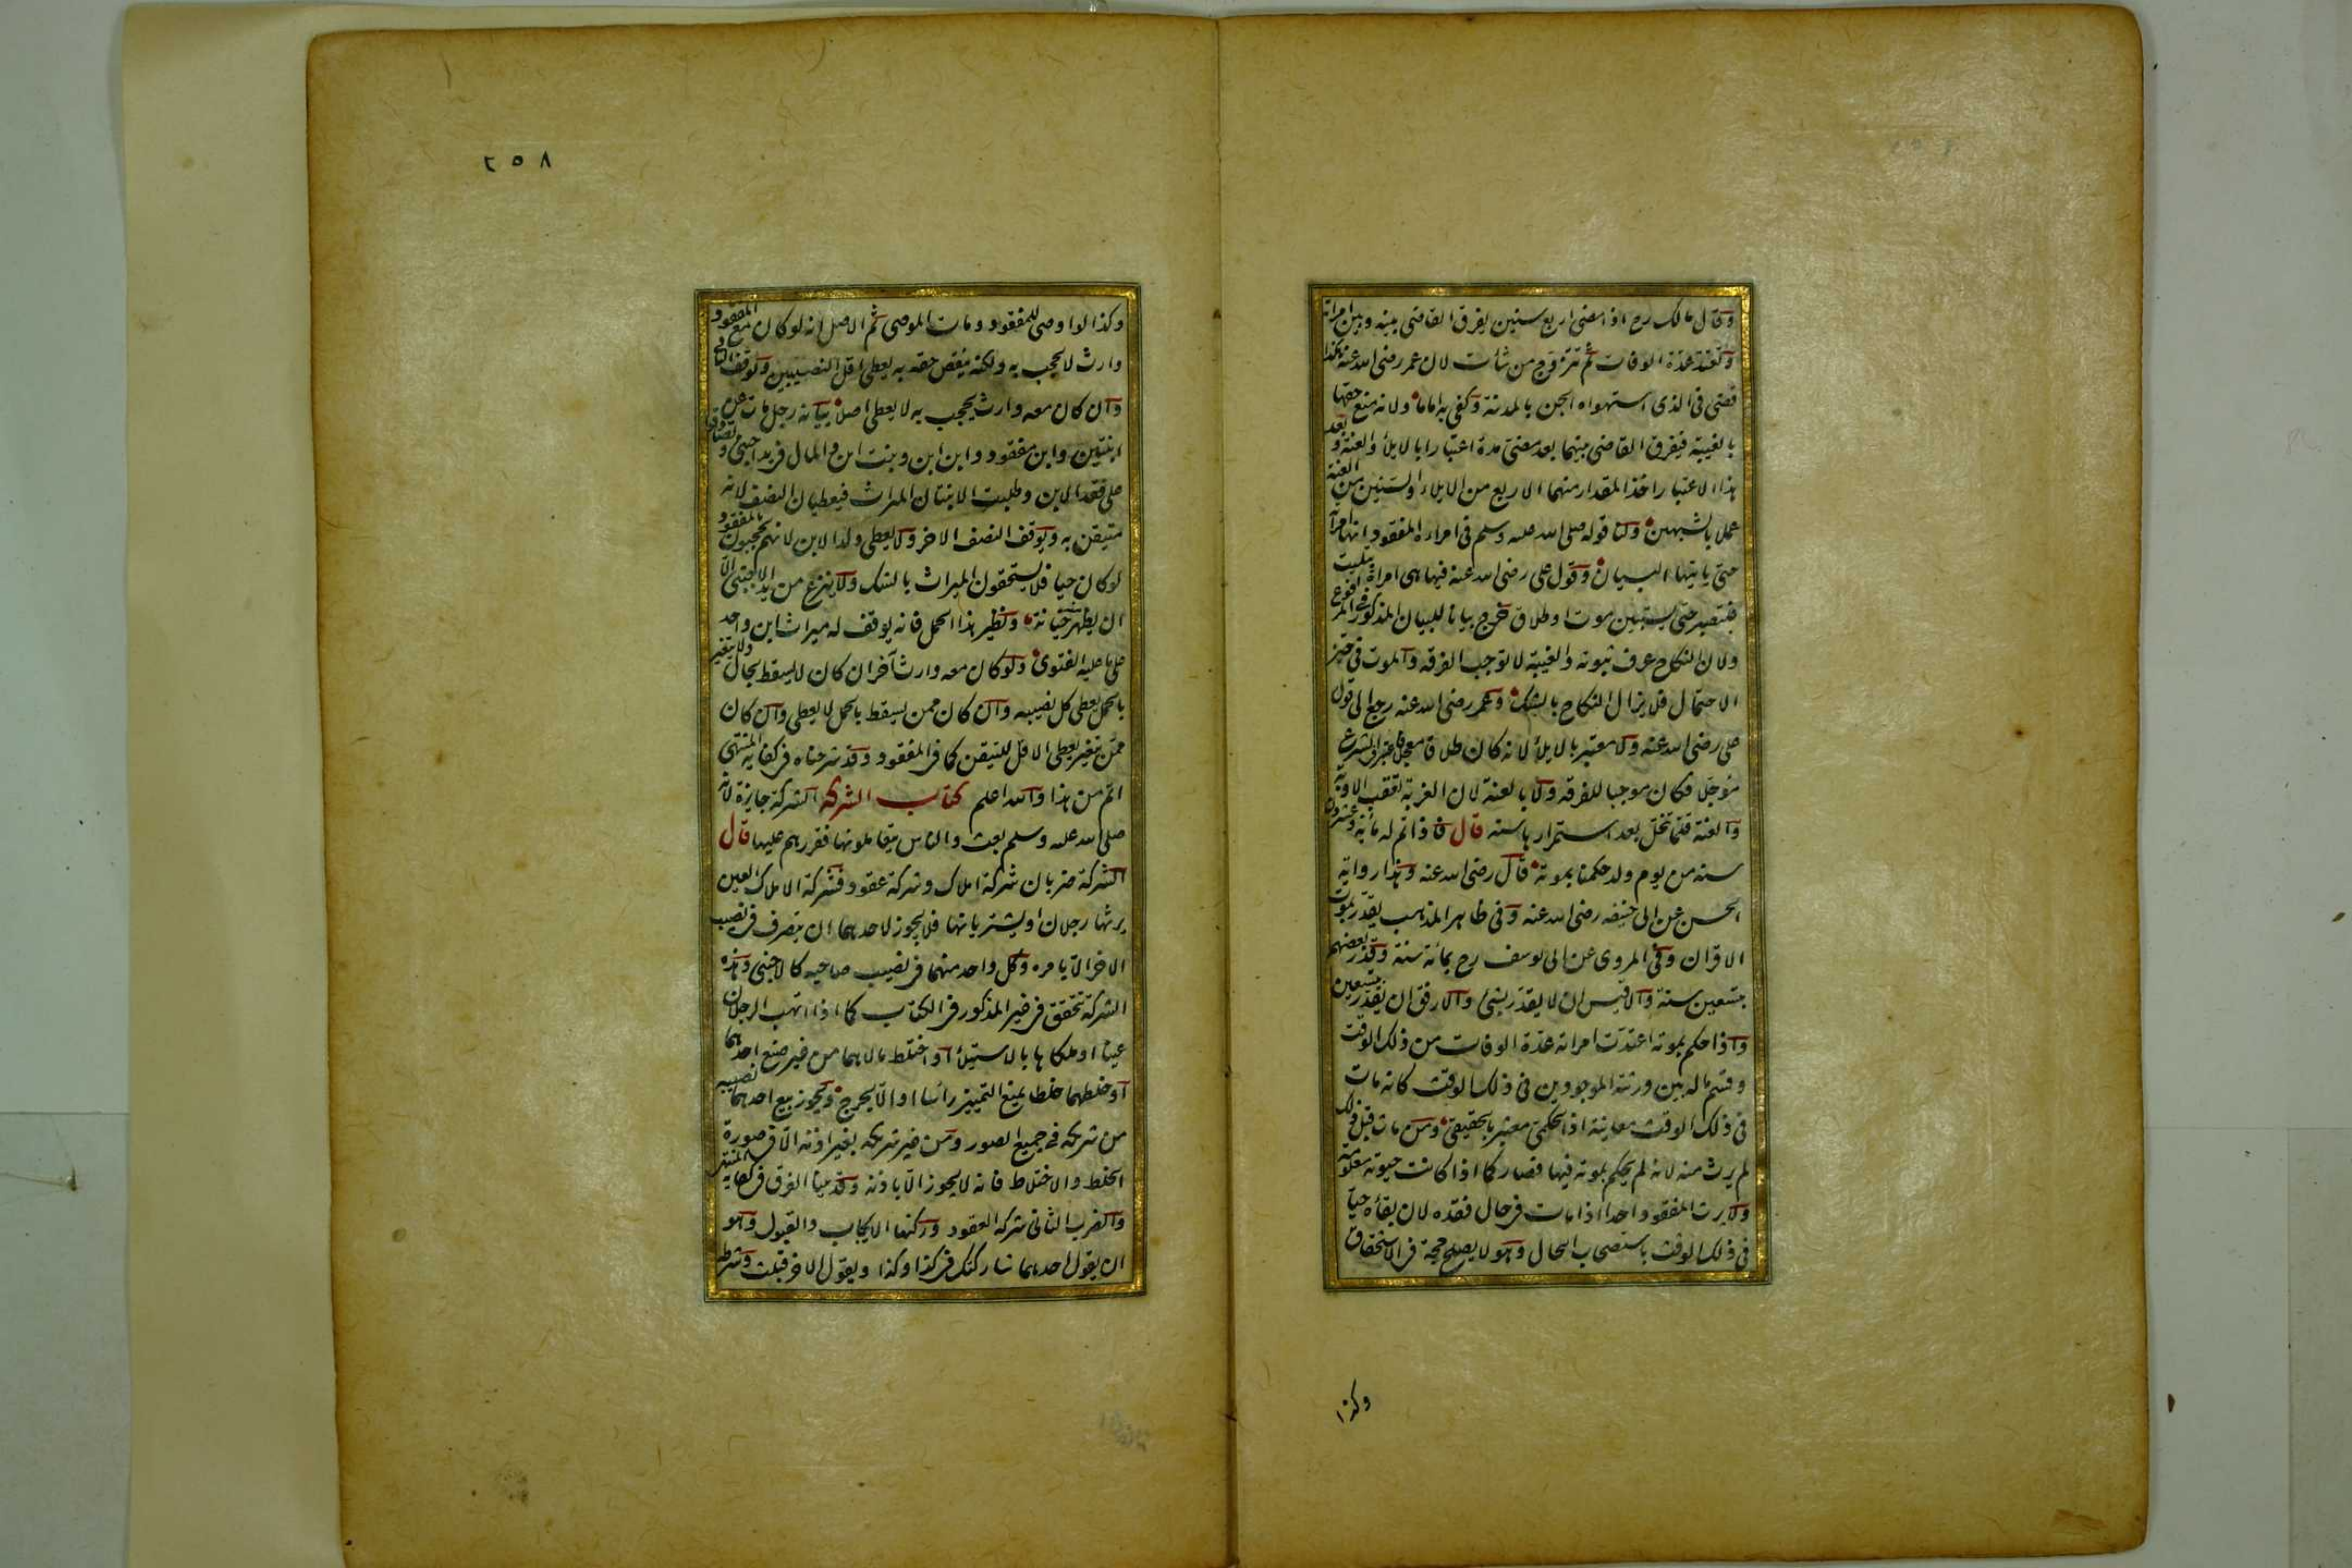 وقال مالك رح اذا مضى اربع سنين يفرق القاضى بينه وبين امراته
وتعتد عدة الوفات ثم تتزوج من شأت لان عمر رضى الله عنه هكذا
قضى فى الذى استهواه الجن بالمدنية وكفى به اماما ولانه منع حقها
بالغيبة فيفرق القاضى بينهما بعد مضى مدة اعتبارا بالايلاء والعنة وبعد
هذا الاعتبار اخذ المقدار منهما الاربع من الايلاء والسنين من العنة
عملا بالشبهين ولنا قوله صلى الله عليه وسلم فى امراءة المفقود انها امرأته
حتى ياتيها البيان وقول على رضى الله عنه فيها هى امراة ابتليت
فلتصبر حتى يستبين موت او طلاق خرج بيانا للبيان المذكور فى المرفوع
ولان النكاح عرف ثبوته والغيبة لا توجب الفرقه والموت فى حيز
الاحتمال فلا يزال النكاح بالشك وعمر رضى الله عنه رجع الى قول
على رضى الله عنه ولا معتبر بالايلأ لانه كان طلاقا معجلا فاعتبر فى الشرع
مؤجلا فكان موجبا للفرقه ولا بالعنة لان الغربة تعقب الاوبة
والعنة قلما تنحل بعد استمرارها سنه قال فاذا تم له مائة وعشرون
سنه من يوم ولد حكمنا بموته قال رضى الله عنه وهذا رواية
الحسن عن ابى حنيفه رضى الله عنه وفى ظاهر المذهب يقدر بموت
الاقران وفى المروى عن ابى يوسف رح بمائة سنة وقدر بعضهم
بتسعين سنة والاقيس ان لا يقدر بشئ والارفق ان يقدر بتسعين
واذا حكم بموته اعتدت امراته عدة الوفات من ذلك الوقت
وقسم ماله بين ورثته الموجودين فى ذلك الوقت كانه مات
فى ذلك الوقت معاينة اذ الحكمى معتبر بالحقيقى ومن مات قبل ذلك
لم يرث منه لانه لم يحكم بموته فيها فصار كما اذا كانت حيوته معلومة
ولا يرث المفقود احدا اذا مات فى حال فقده لان بقأه حيا
فى ذلك الوقت باستصحاب الحال وهو لا يصلح حجة فى الاستحقاق
وكذا
٢٥٨
وكذا لو اوصى للمفقود ومات الموصى ثم الاصل انه لو كان مع المفقود
وارث لا يحجب به ولكنه ينقص حقه به يعطى اقل النصيبين ويوقف الباقى
وان كان معه وارث يحجب به لا يعطى اصلا بيانه رجل مات عن
ابنتين وابن مفقود وابن ابن وبنت ابن والمال فى يد اجنبى وتصادقوا
على فقد الابن وطلبت الابنتان الميراث فيعطيان النصف لانه
متيقن به ويوقف النصف الاخر ولا يعطى ولد الابن لانهم يحجبون بالمفقود
لو كان حيا فلا يستحقون الميراث بالشك ولا ينزع من يد الاجنبى الا
ان يظهر خيانة ونظير هذا الحمل فانه يوقف له ميراث ابن واحد
على ما عليه الفتوى ولو كان معه وارث آخر ان كان لا يسقط بحال ولا يتغير
بالحمل يعطى كل نصيبه وان كان ممن يسقط بالحمل لا يعطى وان كان
ممن يتغير يعطى الاقل للتيقن كما فى المفقود وقد شرحناه فى كفاية المنتهى
اتم من هذا والله اعلم كتاب الشركه الشركة جايزة لانه
صلى الله عليه وسلم بعث والناس يتعاملونها فقررهم عليها قال
الشركة ضربان شركة املاك وشركة عقود فشركة الاملاك العين
يرثها رجلان او يشتريانها فلا يجوز لاحدهما ان يتصرف فى نصيب
الاخر الا بامره وكل واحد منهما فى نصيب صاحبه كالاجنبى وهذه
الشركة تتحقق فى غير المذكور فى الكتاب كما اذا اتهب الرجلان
عينا او ملكاها بالاستيلأ او اختلط مالاهما من غير صنع احدهما
او خلطهما خلطا يمنع التمييز رأسا او الا بحرج ويجوز بيع احدهما نصيبه
من شريكه فى جميع الصور ومن غير شريكه بغير اذنه الا فى صورة
الخلط والاختلاط فانه لا يجوز الا باذنه وقد بينا الفرق فى كفاية المنتهى
والضرب الثانى شركه العقود وركنها الايجاب والقبول وهو
ان يقول احدهما شاركتك فى كذا وكذا ويقول الاخر قبلت وشرطه